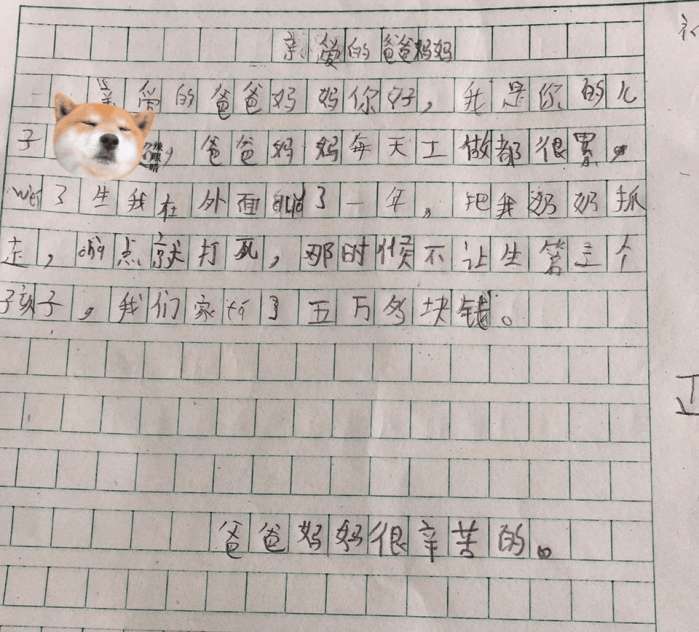 亲爱的爸爸妈妈
亲爱的爸爸妈妈你好，我是你的儿
子 辣眼睛，爸爸妈妈每天工做都很累。
wei了生我在外面 了一年，把我奶奶抓
走， 点就打死，那时候不让生第三个
孩子，我们家 了五万多块钱。
爸爸妈妈很辛苦的。